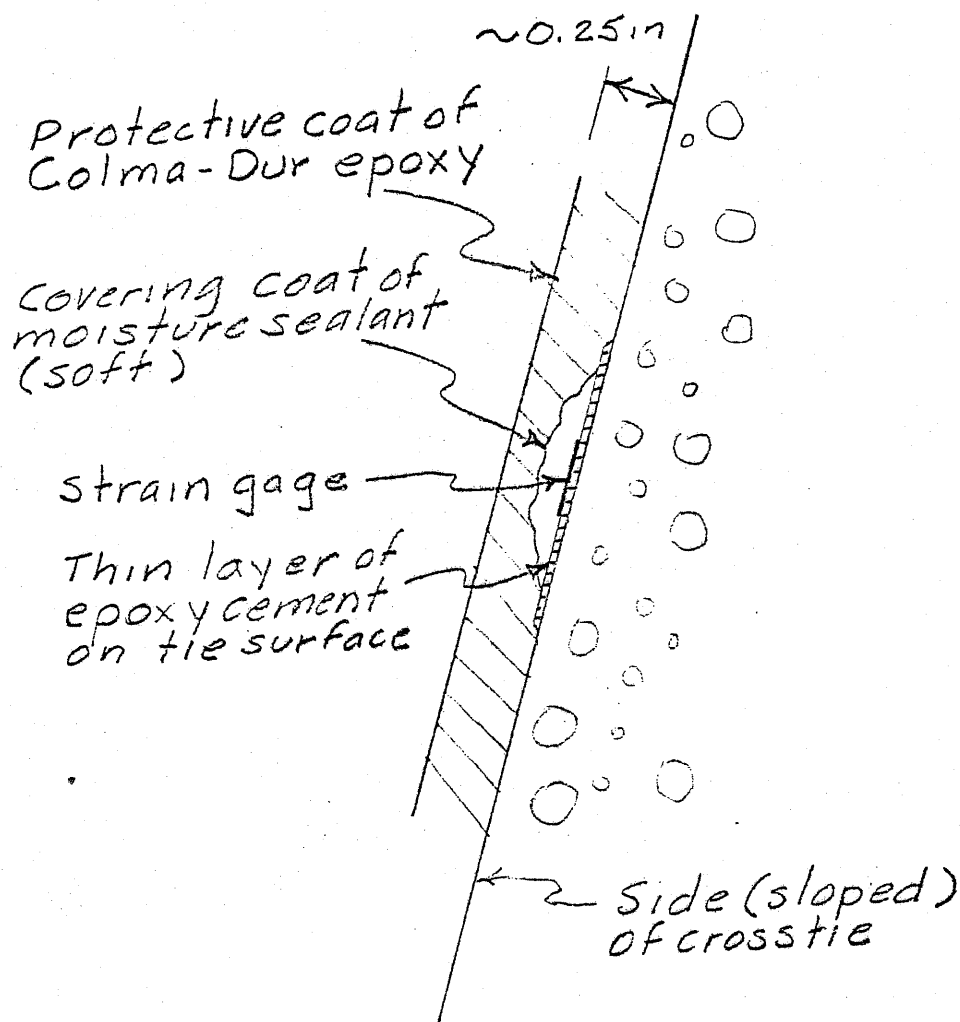 ~0.25in
Protective coat of
Colma-Dur epoxy
Covering coat of
moisture sealant
(soft)
strain gage
Thin layer of
epoxy cement
on tie surface
Side (sloped)
of crosstie